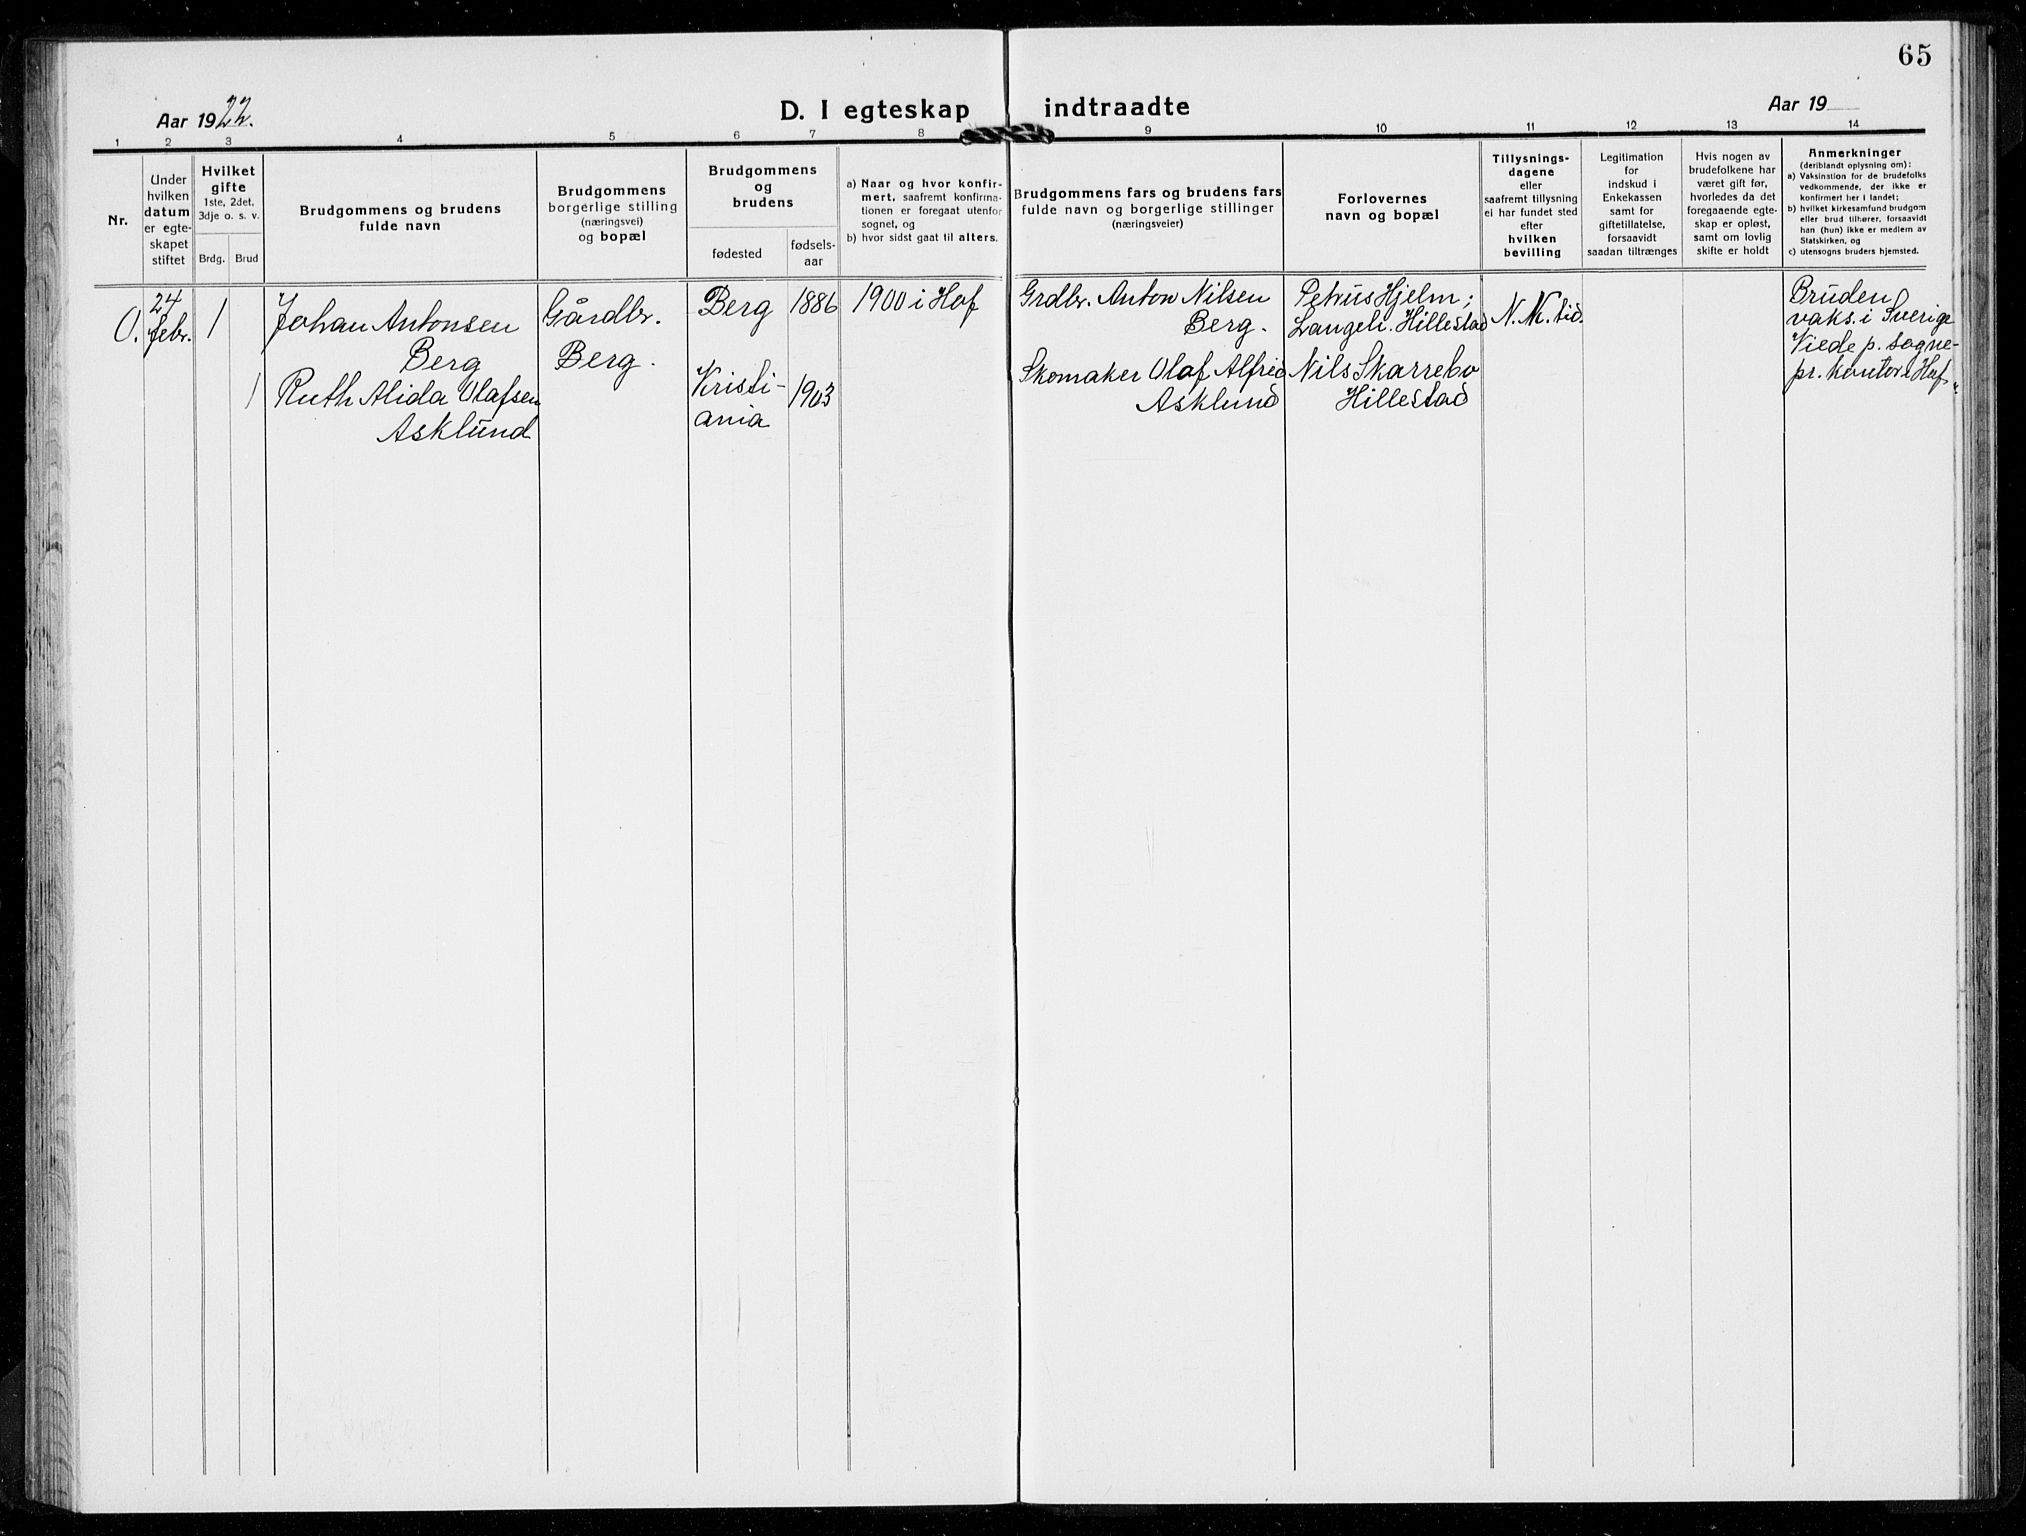 65
Aar 1922.
D. I egteskap indtraadte
Aar 19
1 2 3 4 5 6 7 8 9 10 11 12 13 14
Nr.
Under
hvilken
datum
er egte-
skapet
stiftet
Hvilket
gifte
1ste, 2det,
3dje o. s. v.
Brdg. Brud
Brudgommens og brudens
fulde navn
Brudgommens
borgerlige stilling
(næringsvei)
og bopæl
Brudgommens
og
brudens
fødested
fødsels-
aar
a) Naar og hvor konfir-
mert, saafremt konfirma-
tionen er foregaat utenfor
sognet, og
b) hvor sidst gaat til alters.
Brudgommens fars og brudens fars
fulde navn og borgerlige stillinger
(næringsveier)
Forlovernes
navn og bopæl
Tillysnings-
dagene
eller
saafremt tillysning
ei har fundet sted
efter
hvilken
bevilling
Legitimation
for
indskud i
Enkekassen
samt for
giftetillatelse,
forsaavidt
saadan tiltrænges
Hvis nogen av
brudefolkene har
været gift før,
hvorledes da det
foregaaende egte-
skap er opløst,
samt om lovlig
skifte er holdt
Anmerkninger
(deriblandt oplysning om):
a) Vaksination for de brudefolks
vedkommende, der ikke er
konfirmert her i landet;
b) hvilket kirkesamfund brudgom
eller brud tilhører, forsaavidt
han (hun) ikke er medlem av
Statskirken, og
c) utensogns bruders hjemsted.
0.
24
febr.
1
Johan Antonsen
Berg
Gårdbr.
Berg.
Berg
1886
1900 i Hof
Grdbr. Anton Nilsen
Berg.
Petrus Hjelm;
Langeli. Hillestad
N. M. tid.
Bruden
vaks. i Sverige
Viede p. sogne-
pr. kontor i Hof.
1
Ruth Alida Olafsen
Asklund
Kristi-
ania
1903
Skomaker Olaf Alfred
Asklund
Nils Skarrebo
Hillestad